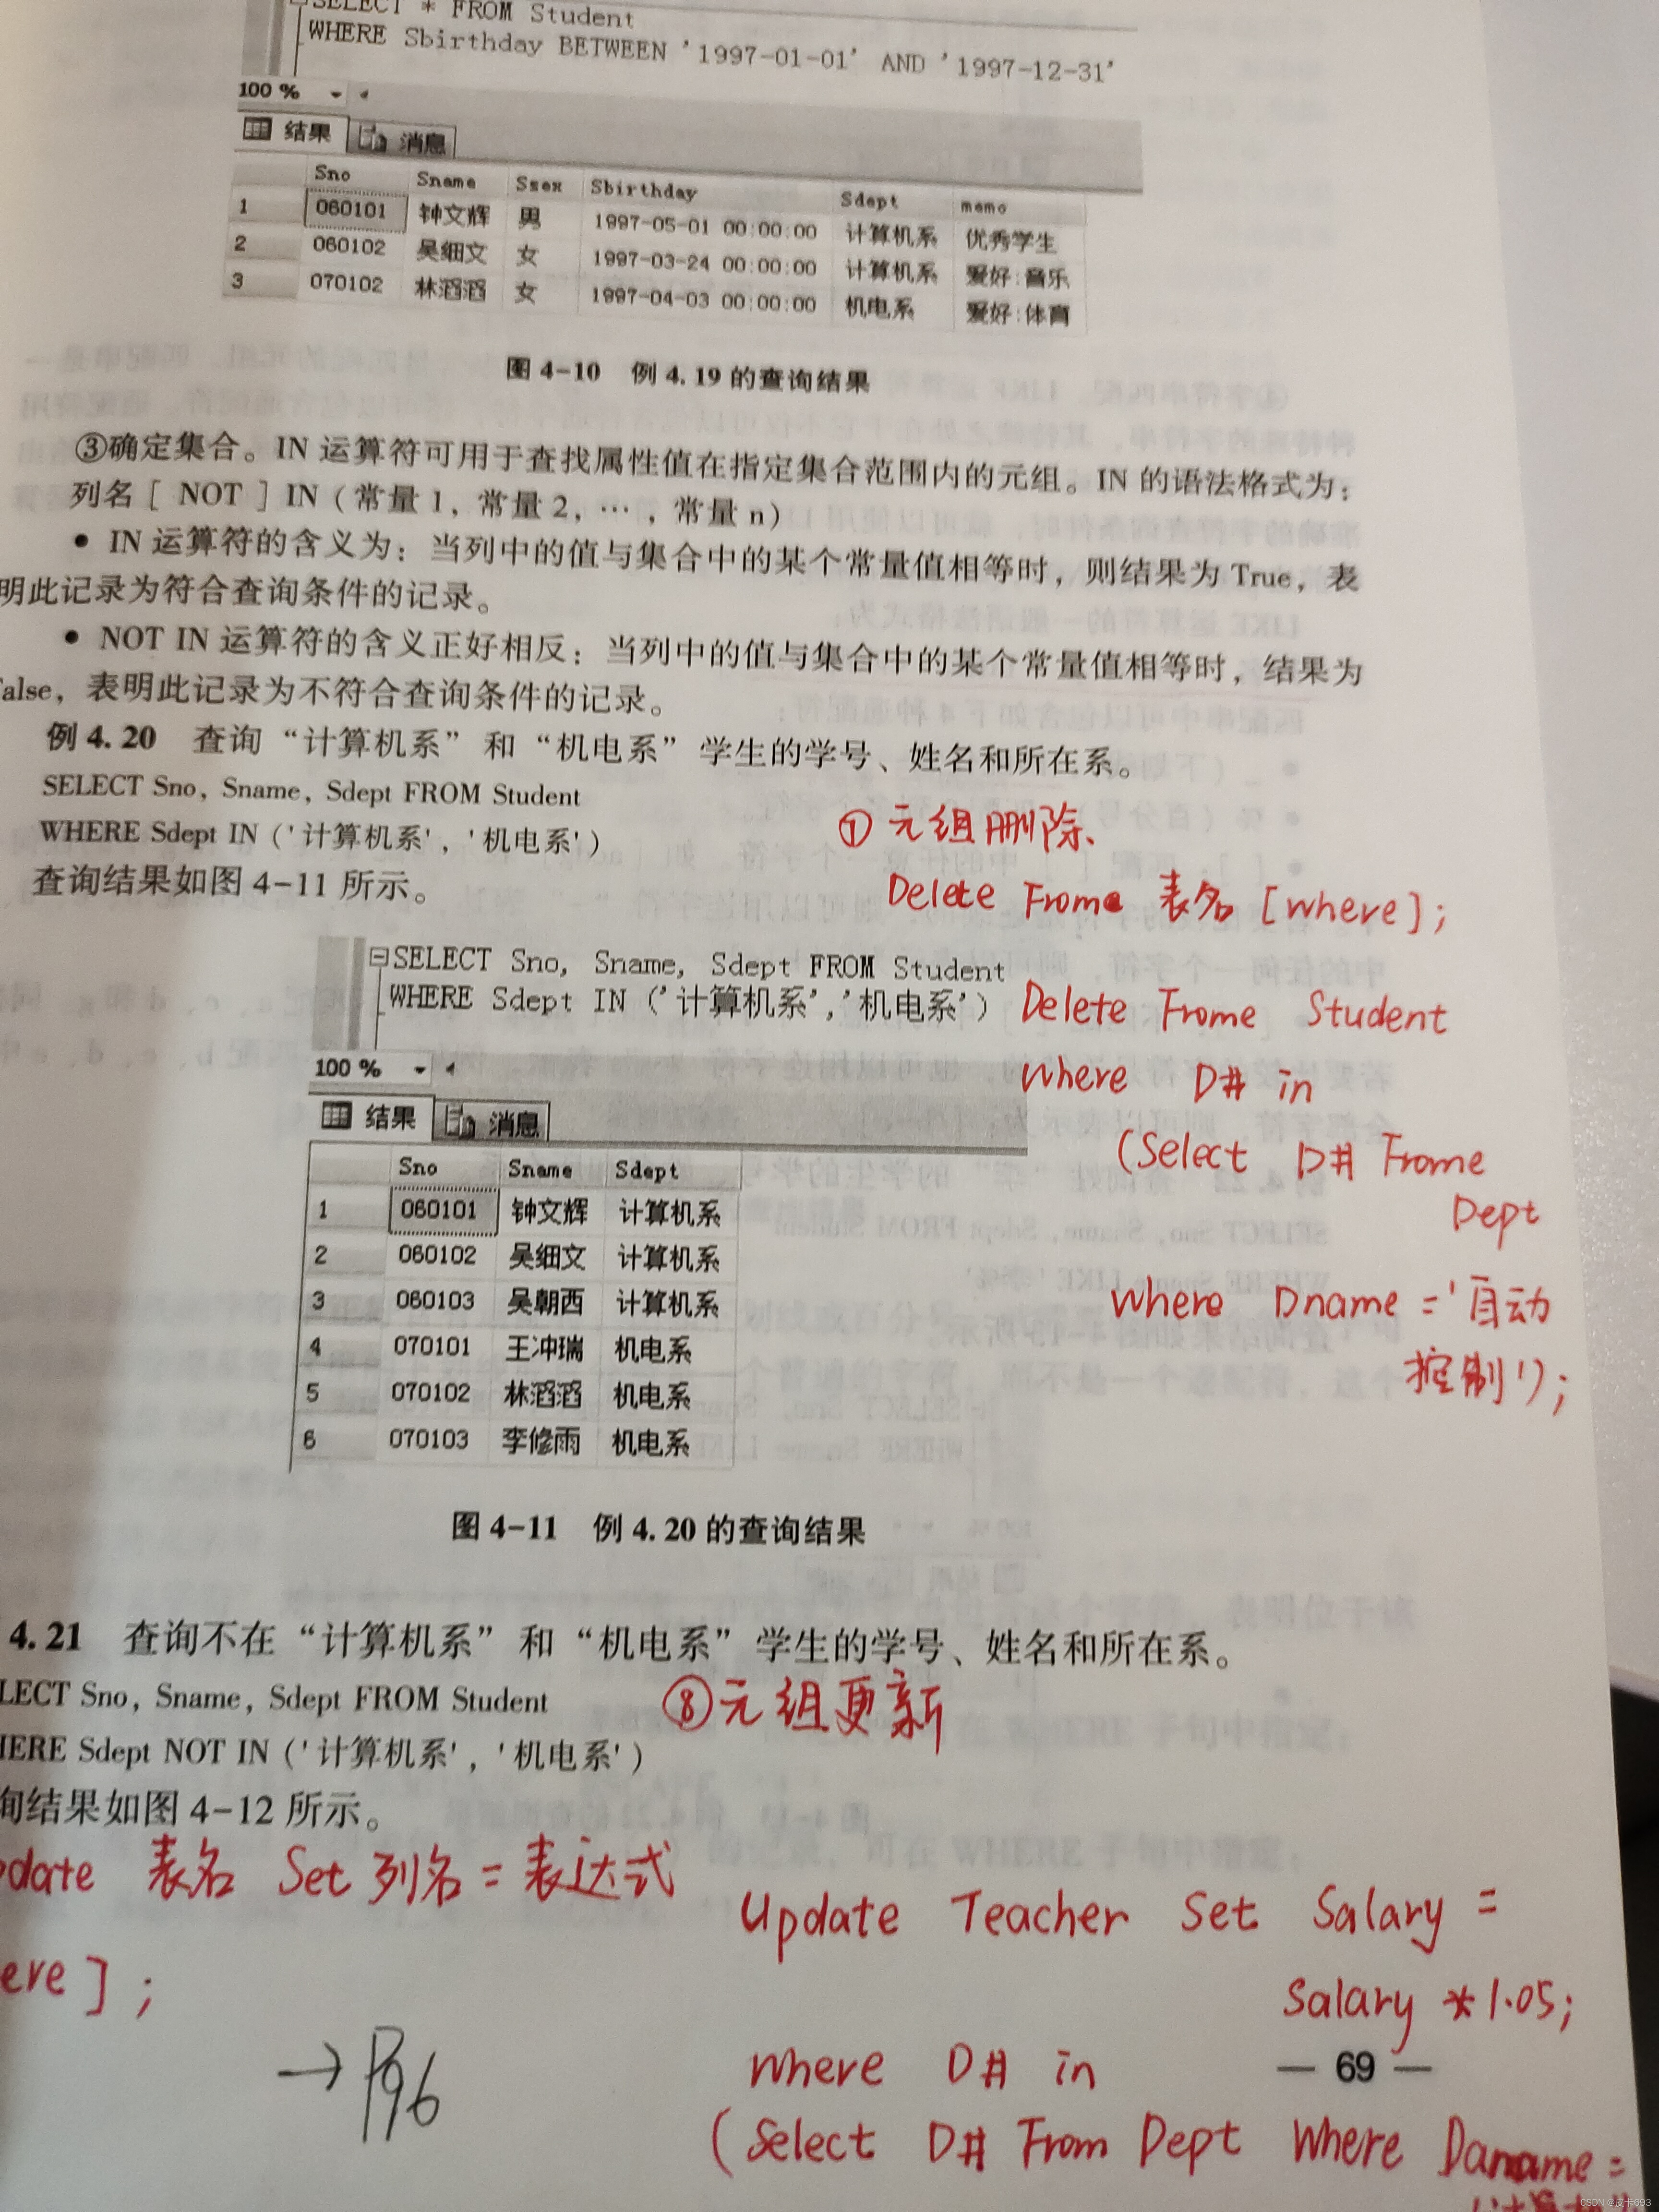 SELECT * FROM Student
WHERE Sbirthday BETWEEN '1997-01-01' AND '1997-12-31'
100 %
结果 消息
Sno Sname Ssex Sbirthday Sdept memo
1 060101 钟文辉 男 1997-05-01 00:00:00 计算机系 优秀学生
2 060102 吴细文 女 1997-03-24 00:00:00 计算机系 爱好:音乐
3 070102 林滔滔 女 1997-04-03 00:00:00 机电系 爱好:体育
图 4-10 例 4.19 的查询结果
③确定集合。IN 运算符可用于查找属性值在指定集合范围内的元组。IN 的语法格式为:
列名 [ NOT ] IN (常量 1, 常量 2, …, 常量 n)
• IN 运算符的含义为: 当列中的值与集合中的某个常量值相等时, 则结果为 True, 表
明此记录为符合查询条件的记录。
• NOT IN 运算符的含义正好相反: 当列中的值与集合中的某个常量值相等时, 结果为
False, 表明此记录为不符合查询条件的记录。
例 4.20 查询“计算机系”和“机电系”学生的学号、姓名和所在系。
SELECT Sno, Sname, Sdept FROM Student
WHERE Sdept IN ('计算机系', '机电系')
查询结果如图 4-11 所示。
① 元组删除、
Delete Frome 表名 [where];
SELECT Sno, Sname, Sdept FROM Student
WHERE Sdept IN ('计算机系','机电系')
Delete Frome Student
where D# in
(Select D# Frome
Dept
where Dname ='自动
控制');
100 %
结果 消息
Sno Sname Sdept
1 060101 钟文辉 计算机系
2 060102 吴细文 计算机系
3 060103 吴朝西 计算机系
4 070101 王冲瑞 机电系
5 070102 林滔滔 机电系
6 070103 李修雨 机电系
图 4-11 例 4.20 的查询结果
4.21 查询不在“计算机系”和“机电系”学生的学号、姓名和所在系。
LECT Sno, Sname, Sdept FROM Student
HERE Sdept NOT IN ('计算机系', '机电系')
询结果如图 4-12 所示。
⑧元组更新
pdate 表名 Set 列名 = 表达式
ere ] ;
Update Teacher Set Salary =
Salary * 1.05;
where D# in
(Select D# From Dept Where Daname =
→ P96
— 69 —
CSDN @皮卡693